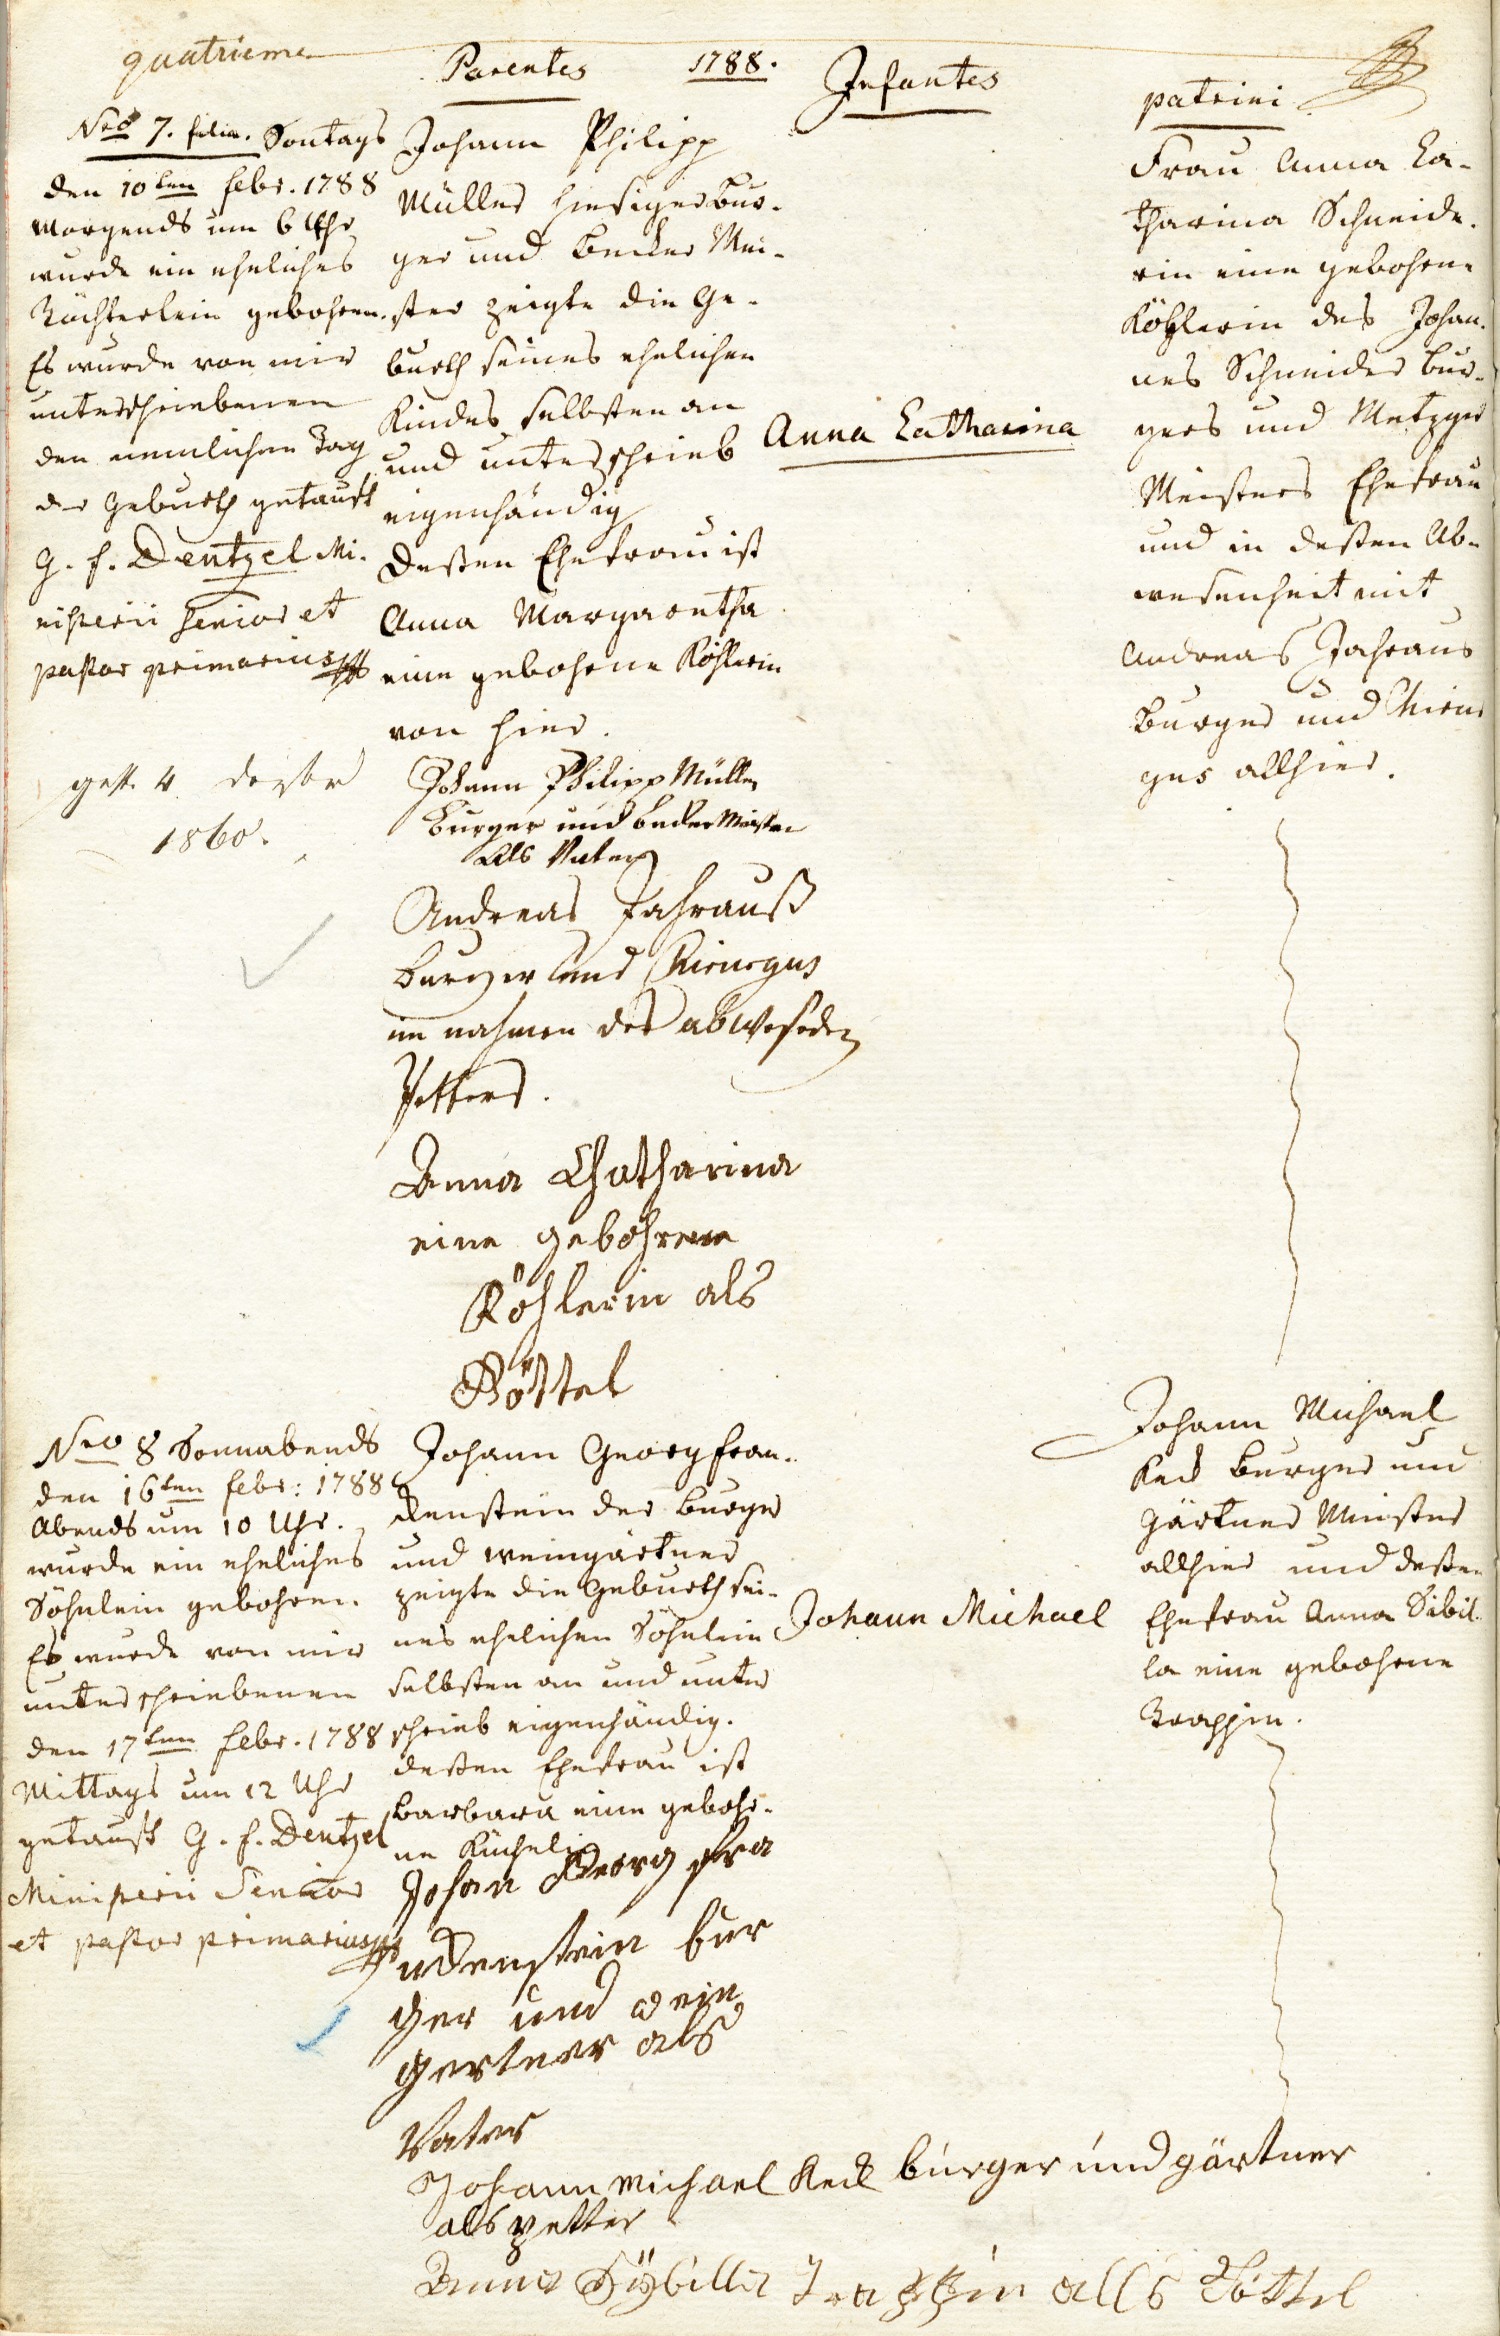 quatrieme
Parentes 1788. Infantes
patrini
Nro 7. filia. Sontags
den 10ten febr. 1788
Morgends um 6 Uhr
wurde ein eheliches
Töchterlein gebohren.
Es wurde von mir
unterschriebenen
den nemlichen Tag
der Geburth getauft
G. f. Dentzel Mi-
nisterii Senior et
pastor primarius
gest. 4 Dezbr
1860.
Johann Philipp
Müller hiesiger Bur-
ger und Becker Mei-
ster zeigte die Ge-
burth seines ehelichen
Kindes selbsten an
und unterschrieb
eigenhändig
Deßen Ehefrau ist
Anna Margaretha
eine gebohrne Köhlerin
von hier.
Johann Philipp Müller
Burger und becker Meister
Als Vater
Andreas Jahrauß
burger und Chirurgus
im nahmen des abweseden
Petters.
Anna Chatharina
eine gebohrene
Köhlerin als
Döttel
Anna Catharina
Frau Anna Ca-
tharina Schneide-
rin eine gebohrne
Köhlerin des Johan-
nes Schneider Bur-
gers und Metzger
Meisters Ehefrau
und in deßen Ab-
wesenheit mit
Andreas Jahraus
Burger und Chirur
gus allhier.
Nro 8 Sonnabends
den 16ten febr: 1788
Abends um 10 Uhr.
wurde ein eheliches
Söhnlein gebohren.
Es wurde von mir
unterschriebenen
den 17ten febr. 1788
Mittags um 12 Uhr
getauft G. f. Dentzel
Ministerii Senior
et pastor primarius
Johann Georg Fran-
ckenstein der Burger
und Weingärtner
zeigte die Geburth sei-
nes ehelichen Söhnlein
selbsten an und unter
schrieb eigenhändig.
deßen Ehefrau ist
Barbara eine gebohr-
ne
Johan Georg fra
nckenstein bur
ger und wein
gertner als
Vater
Johann Michael Keck burger und gärtner
als petter
Anna Sÿbilla Trappin alls Döttel
Johann Michael
Johann Michael
Keck Burger und
Gärtner Meister
allhier und deßen
Ehefrau Anna Sibil-
la eine gebohrne
Trappin.